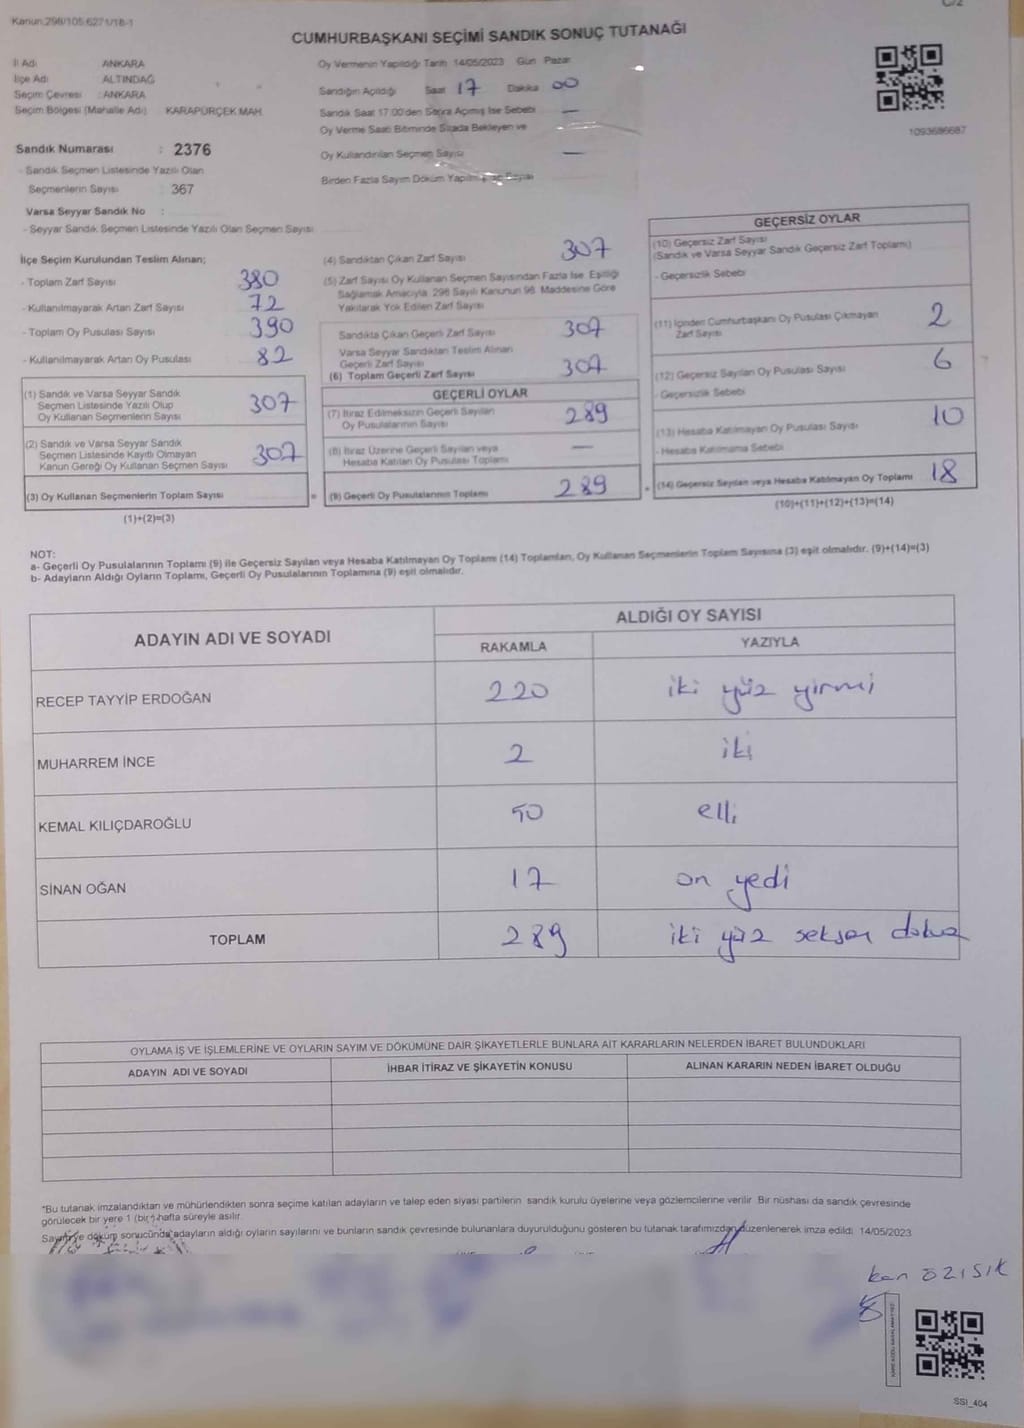 Kanun:298/105.6271/18-1
C/2
CUMHURBAŞKANI SEÇİMİ SANDIK SONUÇ TUTANAĞI
İl Adı ANKARA
İlçe Adı ALTINDAĞ
Seçim Çevresi : ANKARA
Seçim Bölgesi (Mahalle Adı) KARAPÜRÇEK MAH
Oy Vermenin Yapıldığı Tarih 14/05/2023 Gün Pazar
Sandığın Açıldığı Saat 17 Dakika 00
Sandık Saat 17:00'den Sonra Açılmış İse Sebebi —
Oy Verme Saati Bitiminde Sırada Bekleyen ve
Oy Kullandırılan Seçmen Sayısı —
Birden Fazla Sayım Döküm
1093686687
Sandık Numarası : 2376
- Sandık Seçmen Listesinde Yazılı Olan
Seçmenlerin Sayısı 367
Varsa Seyyar Sandık No :
- Seyyar Sandık Seçmen Listesinde Yazılı Olan Seçmen Sayısı
İlçe Seçim Kurulundan Teslim Alınan;
- Toplam Zarf Sayısı 380
- Kullanılmayarak Artan Zarf Sayısı 72
- Toplam Oy Pusulası Sayısı 390
- Kullanılmayarak Artan Oy Pusulası 82
(1) Sandık ve Varsa Seyyar Sandık
Seçmen Listesinde Yazılı Olup
Oy Kullanan Seçmenlerin Sayısı 307
(2) Sandık ve Varsa Seyyar Sandık
Seçmen Listesinde Kayıtlı Olmayan
Kanun Gereği Oy Kullanan Seçmen Sayısı 307
(3) Oy Kullanan Seçmenlerin Toplam Sayısı
(1)+(2)=(3)
(4) Sandıktan Çıkan Zarf Sayısı 307
(5) Zarf Sayısı Oy Kullanan Seçmen Sayısından Fazla İse, Eşitliği
Sağlamak Amacıyla, 298 Sayılı Kanunun 98. Maddesine Göre
Yakılarak Yok Edilen Zarf Sayısı
Sandıkta Çıkan Geçerli Zarf Sayısı 307
Varsa Seyyar Sandıktan Teslim Alınan
Geçerli Zarf Sayısı
(6) Toplam Geçerli Zarf Sayısı 307
GEÇERLİ OYLAR
(7) İtiraz Edilmeksizin Geçerli Sayılan
Oy Pusulalarının Sayısı 289
(8) İtiraz Üzerine Geçerli Sayılan veya
Hesaba Katılan Oy Pusulası Toplamı —
= (9) Geçerli Oy Pusulalarının Toplamı 289
GEÇERSİZ OYLAR
(10) Geçersiz Zarf Sayısı
(Sandık ve Varsa Seyyar Sandık Geçersiz Zarf Toplamı)
- Geçersizlik Sebebi
(11) İçinden Cumhurbaşkanı Oy Pusulası Çıkmayan
Zarf Sayısı 2
(12) Geçersiz Sayılan Oy Pusulası Sayısı 6
- Geçersizlik Sebebi
(13) Hesaba Katılmayan Oy Pusulası Sayısı 10
- Hesaba Katılmama Sebebi
+ (14) Geçersiz Sayılan veya Hesaba Katılmayan Oy Toplamı 18
(10)+(11)+(12)+(13)=(14)
NOT:
a- Geçerli Oy Pusulalarının Toplamı (9) ile Geçersiz Sayılan veya Hesaba Katılmayan Oy Toplamı (14) Toplamları, Oy Kullanan Seçmenlerin Toplam Sayısına (3) eşit olmalıdır. (9)+(14)=(3)
b- Adayların Aldığı Oyların Toplamı, Geçerli Oy Pusulalarının Toplamına (9) eşit olmalıdır.
ADAYIN ADI VE SOYADI
ALDIĞI OY SAYISI
RAKAMLA YAZIYLA
RECEP TAYYİP ERDOĞAN 220 iki yüz yirmi
MUHARREM İNCE 2 iki
KEMAL KILIÇDAROĞLU 50 elli
SİNAN OĞAN 17 on yedi
TOPLAM 289 iki yüz seksen dokuz
OYLAMA İŞ VE İŞLEMLERİNE VE OYLARIN SAYIM VE DÖKÜMÜNE DAİR ŞİKAYETLERLE BUNLARA AİT KARARLARIN NELERDEN İBARET BULUNDUKLARI
ADAYIN ADI VE SOYADI İHBAR İTİRAZ VE ŞİKAYETİN KONUSU ALINAN KARARIN NEDEN İBARET OLDUĞU
*Bu tutanak imzalandıktan ve mühürlendikten sonra seçime katılan adayların ve talep eden siyasi partilerin sandık kurulu üyelerine veya gözlemcilerine verilir. Bir nüshası da sandık çevresinde
görülecek bir yere 1 (bir) hafta süreyle asılır.
Sayım ve döküm sonucunda adayların aldığı oyların sayılarını ve bunların sandık çevresinde bulunanlara duyurulduğunu gösteren bu tutanak tarafımızdan düzenlenerek imza edildi. 14/05/2023
ÖZIŞIK
SSI_404